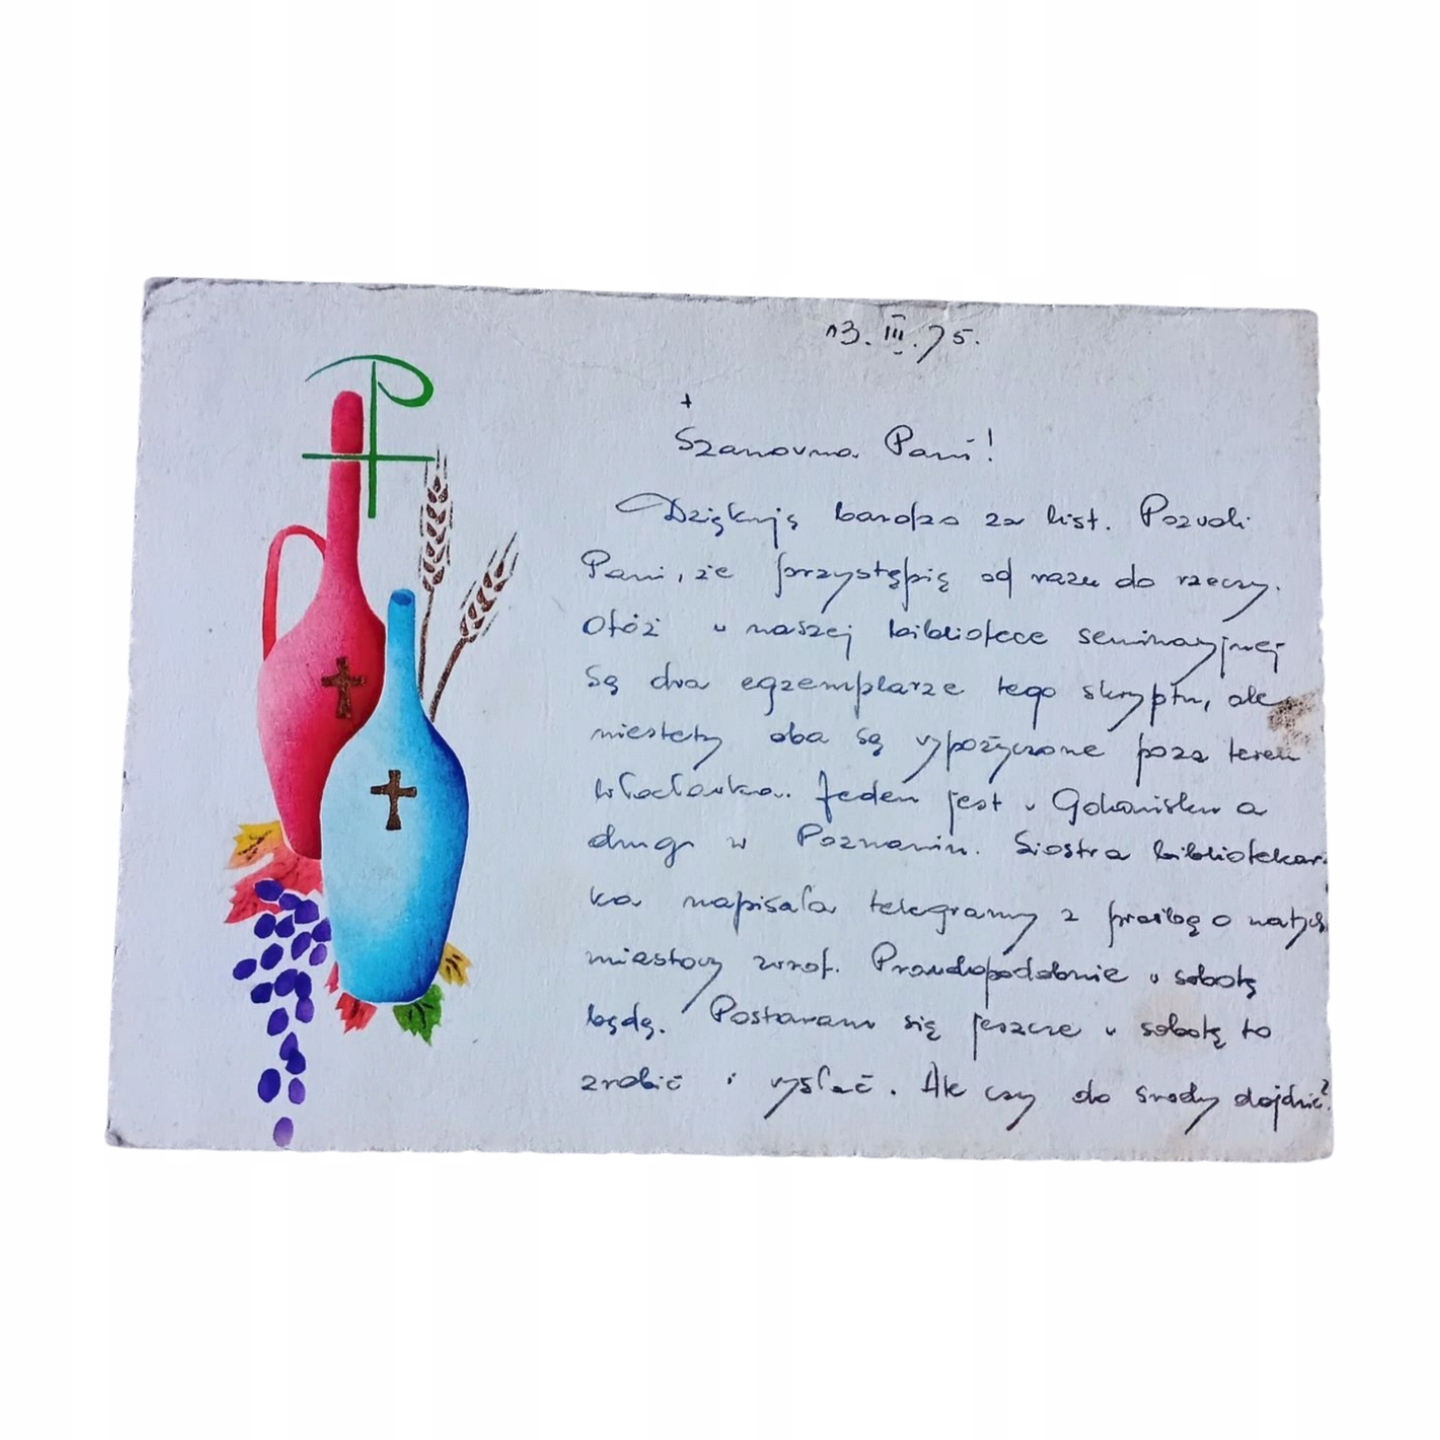 13. III. 75.
+
Szanowna Pani!
Dziękuję bardzo za list. Pozwoli
Pani, że przystąpię od razu do rzeczy.
Otóż w naszej bibliotece seminaryjnej
są dwa egzemplarze tego skryptu, ale
niestety oba są wypożyczone poza teren
Włocławka. Jeden jest w Gdańsku a
drugi w Poznaniu. Siostra bibliotekar-
ka napisała telegramy z prośbą o natych
miastowy zwrot. Prawdopodobnie w sobotę
będą. Postaram się jeszcze w sobotę to
zrobić i wysłać. Ale czy do środy dojdzie?